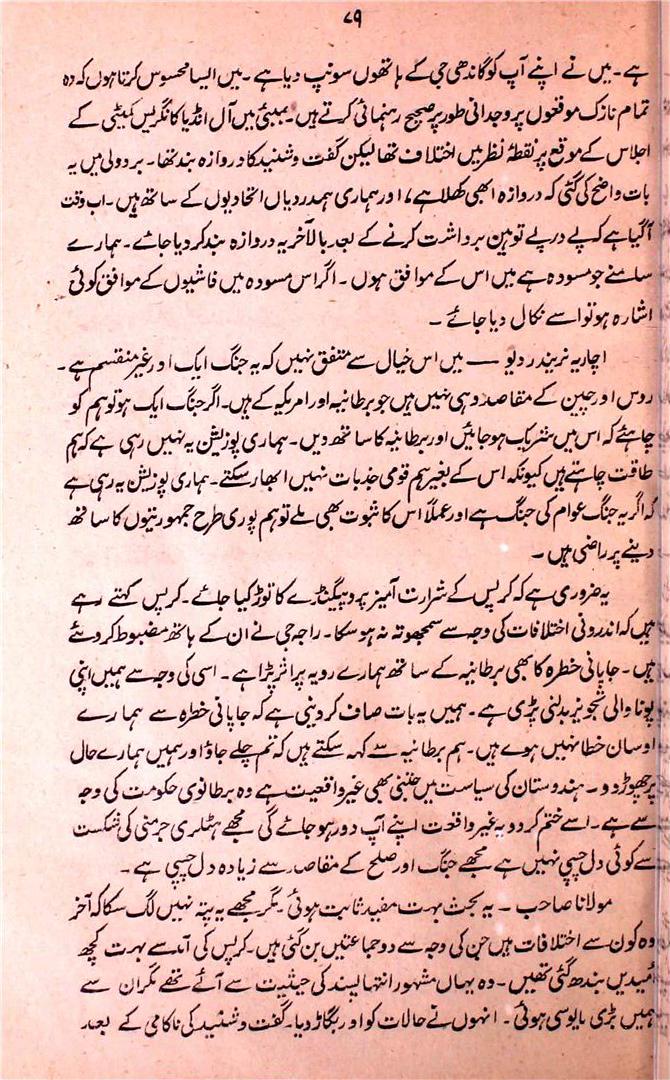 ۷۹
ہے۔ میں نے اپنے آپ کو گاندھی جی کے ہاتھوں سونپ دیا ہے۔ میں ایسا محسوس کرتا ہوں کہ وہ
تمام نازک موقعوں پر وجدانی طور پر صحیح رہنمائی کرتے ہیں۔ بمبئی میں آل انڈیا کانگریس کمیٹی کے
اجلاس کے موقع پر نقطۂ نظر میں اختلاف تھا لیکن گفت و شنید کا دروازہ بند تھا۔ بردولی میں یہ
بات واضح کی گئی کہ دروازہ ابھی کھلا ہے، اور ہماری ہمدردیاں اتحادیوں کے ساتھ ہیں۔ اب وقت
آ گیا ہے کہ پے در پے توہین برداشت کرنے کے بعد بالآخر یہ دروازہ بند کر دیا جائے۔ ہمارے
سامنے جو مسودہ ہے میں اس کے موافق ہوں۔ اگر اس مسودہ میں فاشیوں کے موافق کوئی
اشارہ ہو تو اسے نکال دیا جائے۔
اچاریہ نریندر دیو —— میں اس خیال سے متفق نہیں کہ یہ جنگ ایک اور غیر منقسم ہے۔
روس اور چین کے مقاصد وہی نہیں ہیں جو برطانیہ اور امریکہ کے ہیں۔ اگر جنگ ایک ہو تو ہم کو
چاہئے کہ اس میں شریک ہو جائیں اور برطانیہ کا ساتھ دیں۔ ہماری پوزیشن یہ نہیں رہی ہے کہ ہم
طاقت چاہتے ہیں کیونکہ اس کے بغیر ہم قومی جذبات نہیں ابھار سکتے۔ ہماری پوزیشن یہ رہی ہے
کہ اگر یہ جنگ عوام کی جنگ ہے اور عملاً اس کا ثبوت بھی ملے تو ہم پوری طرح جمہوریتوں کا ساتھ
دینے پر راضی ہیں۔
یہ ضروری ہے کہ کرپس کے شرارت آمیز پروپیگنڈے کا توڑ کیا جائے۔ کرپس کہتے رہے
ہیں کہ اندرونی اختلافات کی وجہ سے سمجھوتہ نہ ہو سکا۔ راجہ جی نے ان کے ہاتھ مضبوط کر دئے
ہیں۔ جاپانی خطرہ کا بھی برطانیہ کے ساتھ ہمارے رویہ پر اثر پڑا ہے۔ اسی کی وجہ سے ہمیں اپنی
پونا والی تجویز بدلنی پڑی ہے۔ ہمیں یہ بات صاف کر دینی ہے کہ جاپانی خطرہ سے ہمارے
اوسان خطا نہیں ہوے ہیں۔ ہم برطانیہ سے کہہ سکتے ہیں کہ تم چلے جاؤ اور ہمیں ہمارے حال
پر چھوڑ دو۔ ہندوستان کی سیاست میں جتنی بھی غیر واقعیت ہے وہ برطانوی حکومت کی وجہ
سے ہے۔ اسے ختم کر دو یہ غیر واقعیت اپنے آپ دور ہو جائے گی مجھے ہٹلری جرمنی کی شکست
سے کوئی دل چسپی نہیں ہے مجھے جنگ اور صلح کے مقاصد سے زیادہ دل چسپی ہے۔
مولانا صاحب۔ یہ بحث بہت مفید ثابت ہوئی۔ مگر مجھے یہ پتہ نہیں لگ سکا کہ آخر
وہ کون سے اختلافات ہیں جن کی وجہ سے دو جماعتیں بن گئی ہیں۔ کرپس کی آمد سے بہت کچھ
امیدیں بندھ گئی تھیں۔ وہ یہاں مشہور انتہا پسند کی حیثیت سے آئے تھے مگر ان سے
ہمیں بڑی مایوسی ہوئی۔ انہوں نے حالات کو اور بگاڑ دیا۔ گفت و شنید کی ناکامی کے بعد